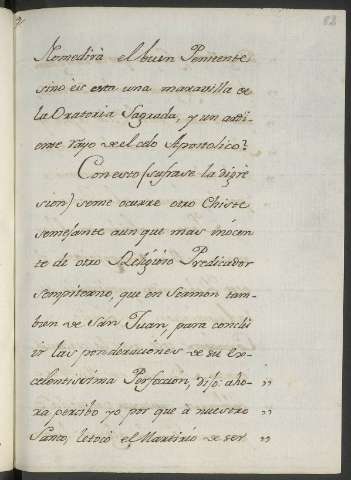 82
Nomedirà el buen Penitente
sino èis esta una maravilla de
la Oratoria Sagrada, y un ardi-
ente rayo de el celo Apostolico?
Con esto (sufrase la digre
sion) seme ocurre otro Chiste
semejante aunque mas inocen
te de otro Religioso Predicador
sempiterno, que en Sermon tam-
bien de San Juan, para conclu
ir las ponderaciones de su ex-
celentissima Perfeccion, dijo: aho- ,,
ra percibo yo por que à nuestro ,,
Santo, letocó el Martirio de ser ,,